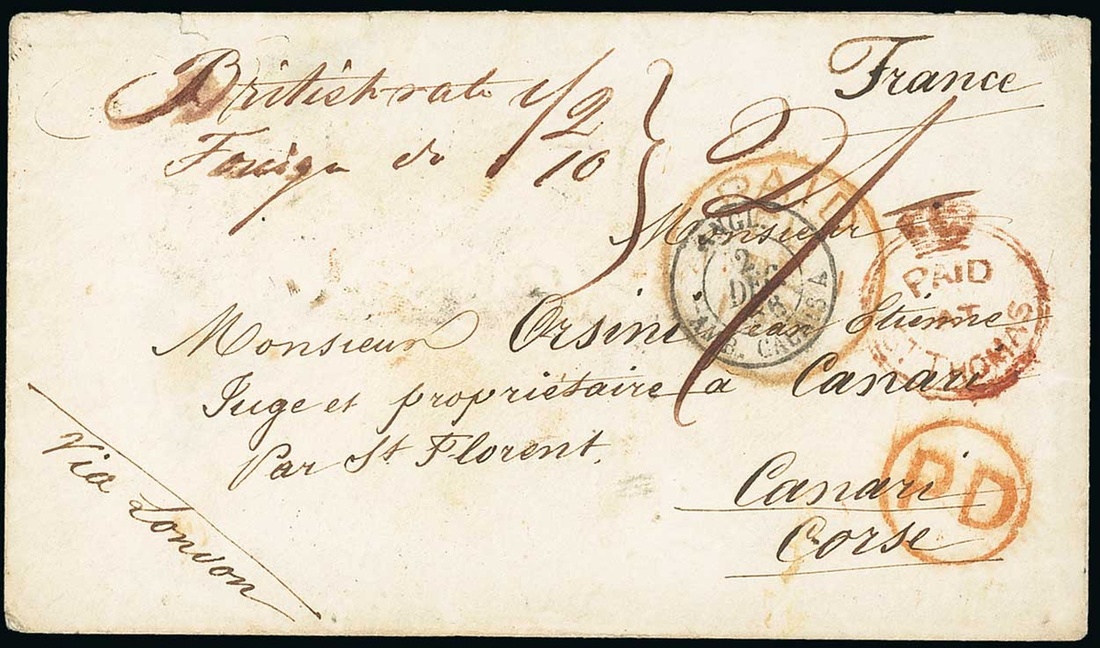 France
British rate 1/2
Foreign do 10
2/
PAID
Monsieur
PAID AT ST. THOMAS
ANGL. 2 DEC 58 AMB. CALAIS A
Monsieur Orsini Jean Etienne
Juge et propriétaire à Canari
Par St Florent.
Canari
Corse
PD
Via London